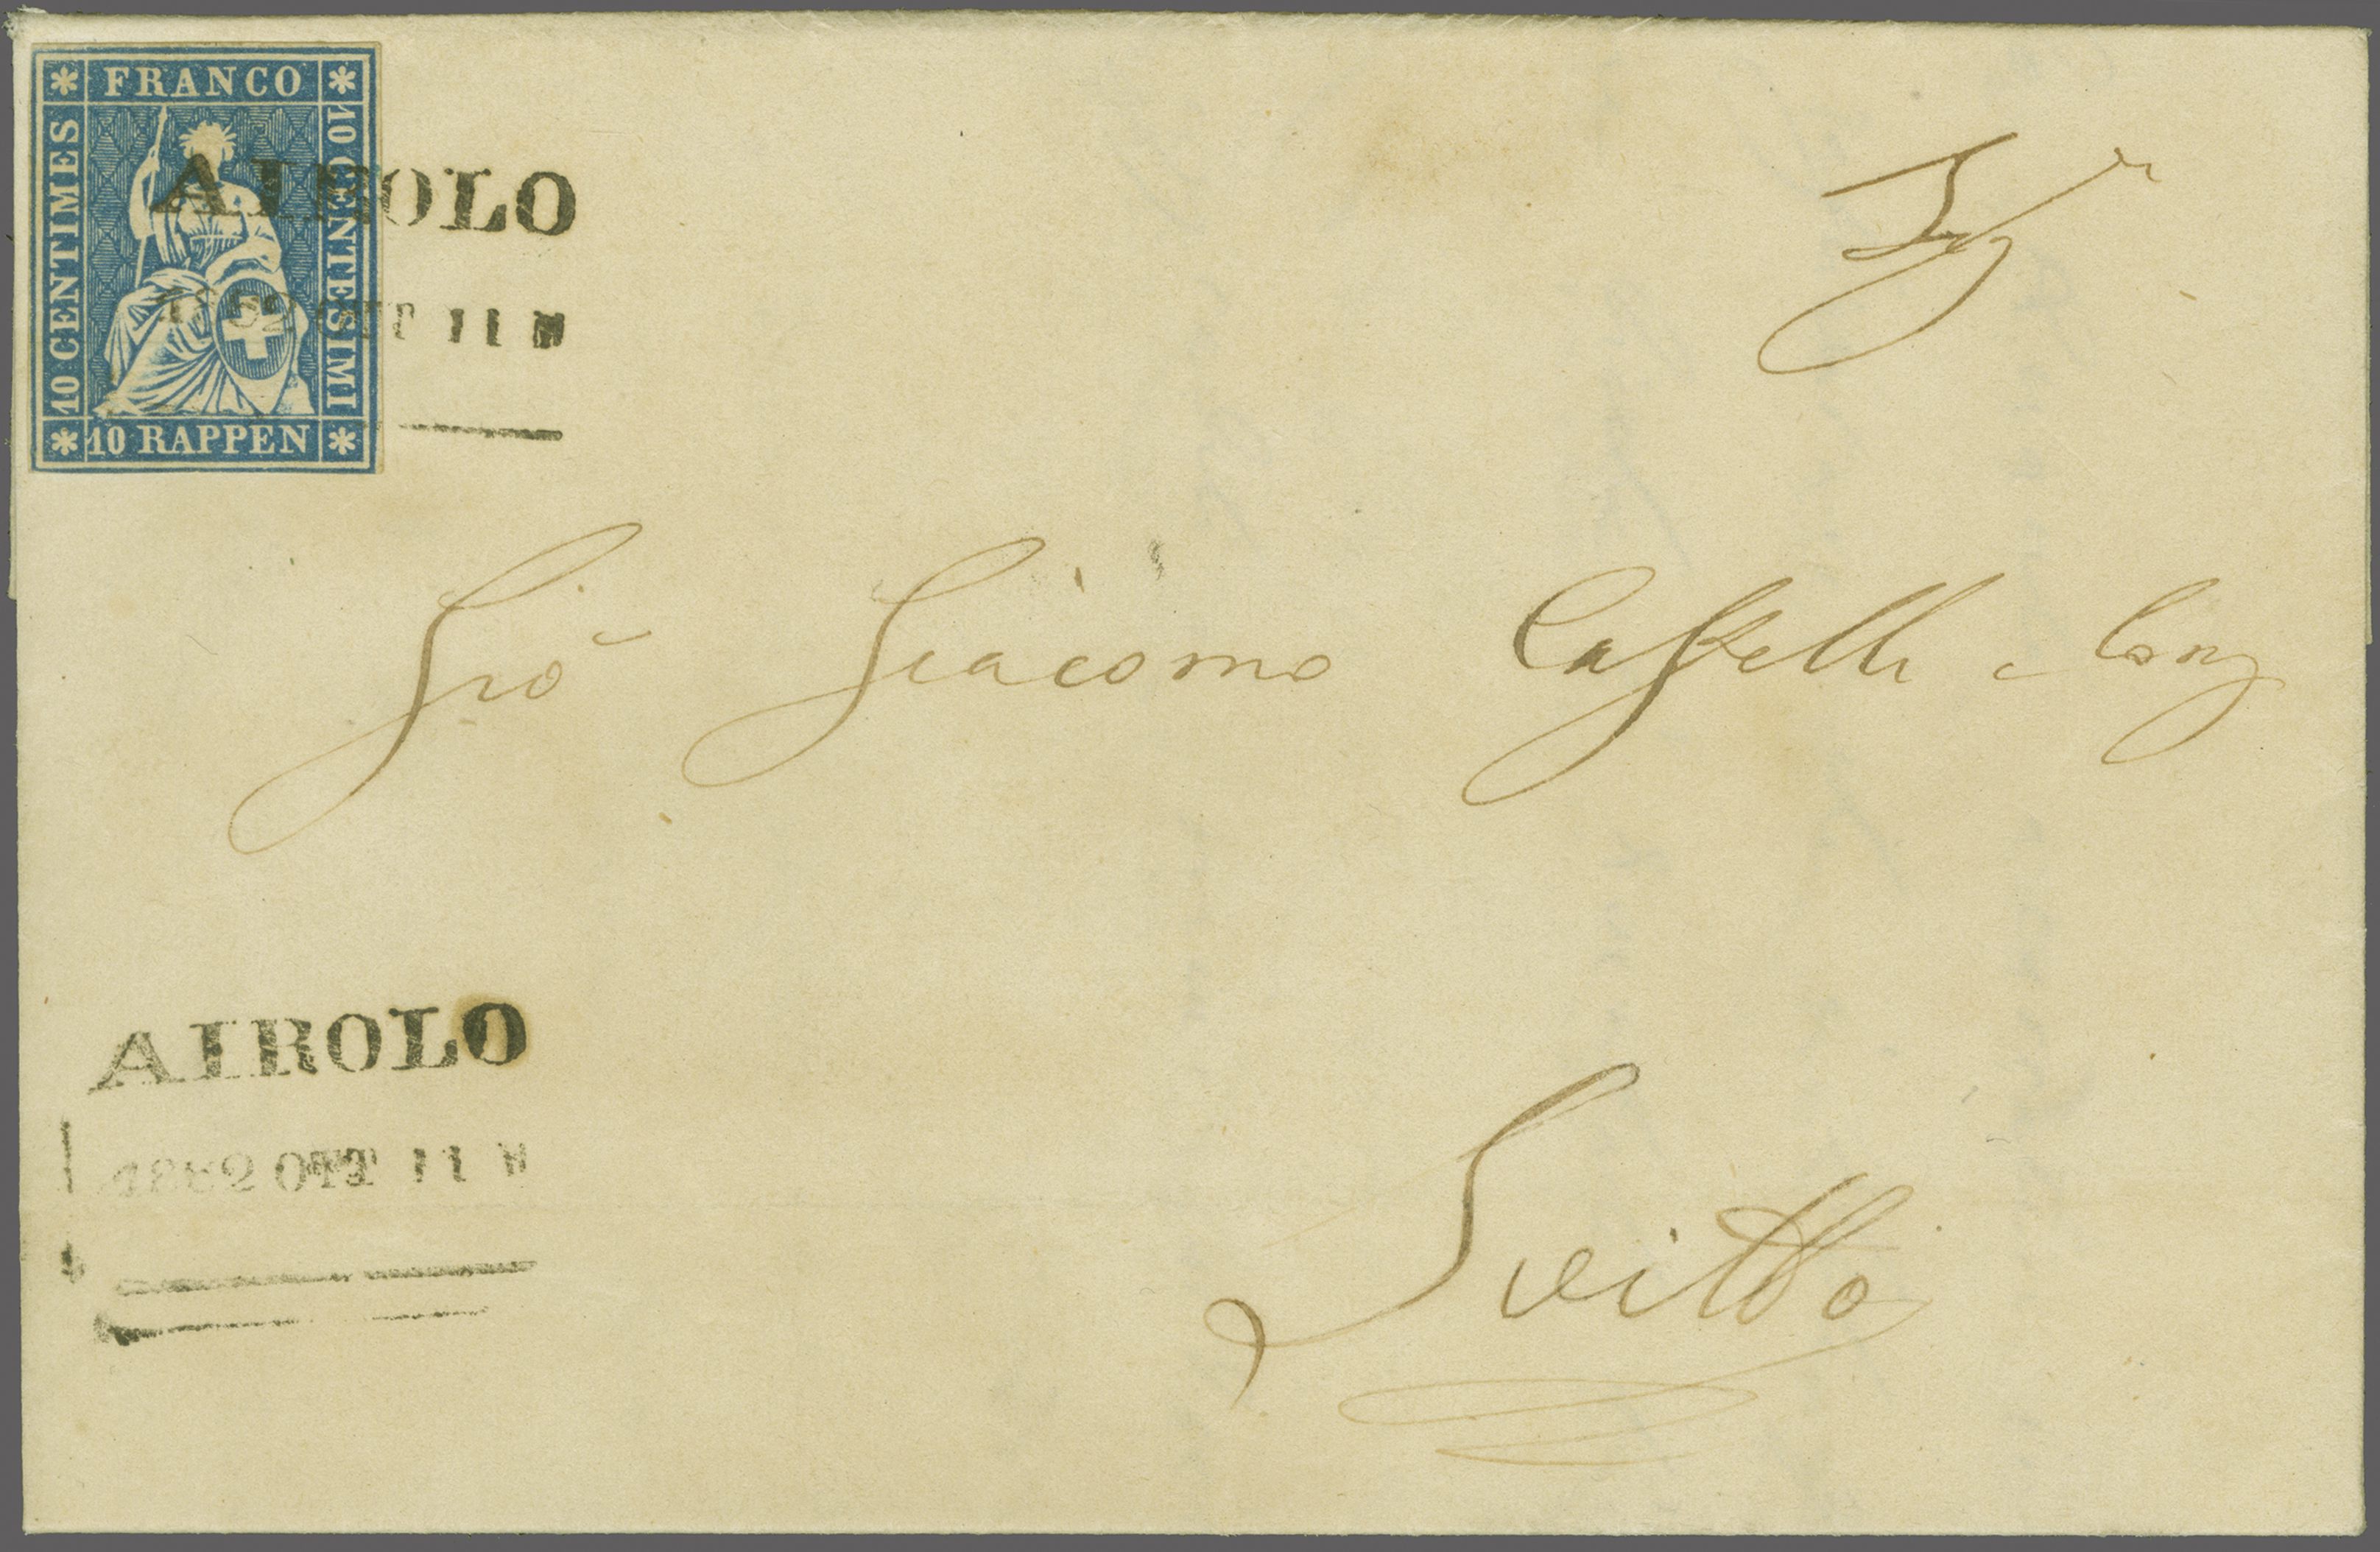 FRANCO
10 CENTIMES
10 CENTESIMI
10 RAPPEN
AIROLO
OTT 11
Gio Giacomo Castelli e
AIROLO
OTT 11
Svitto